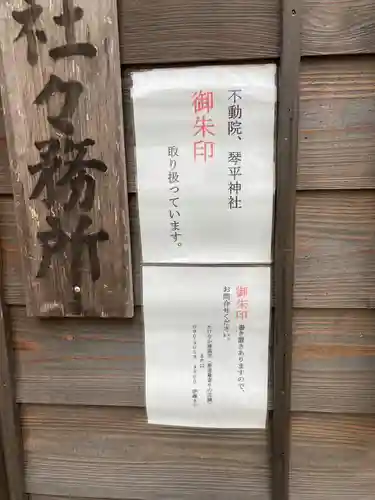 社々務所
不動院、琴平神社
御朱印
取り扱っています。
御朱印 書き置きありますので、
お問合せください。
または